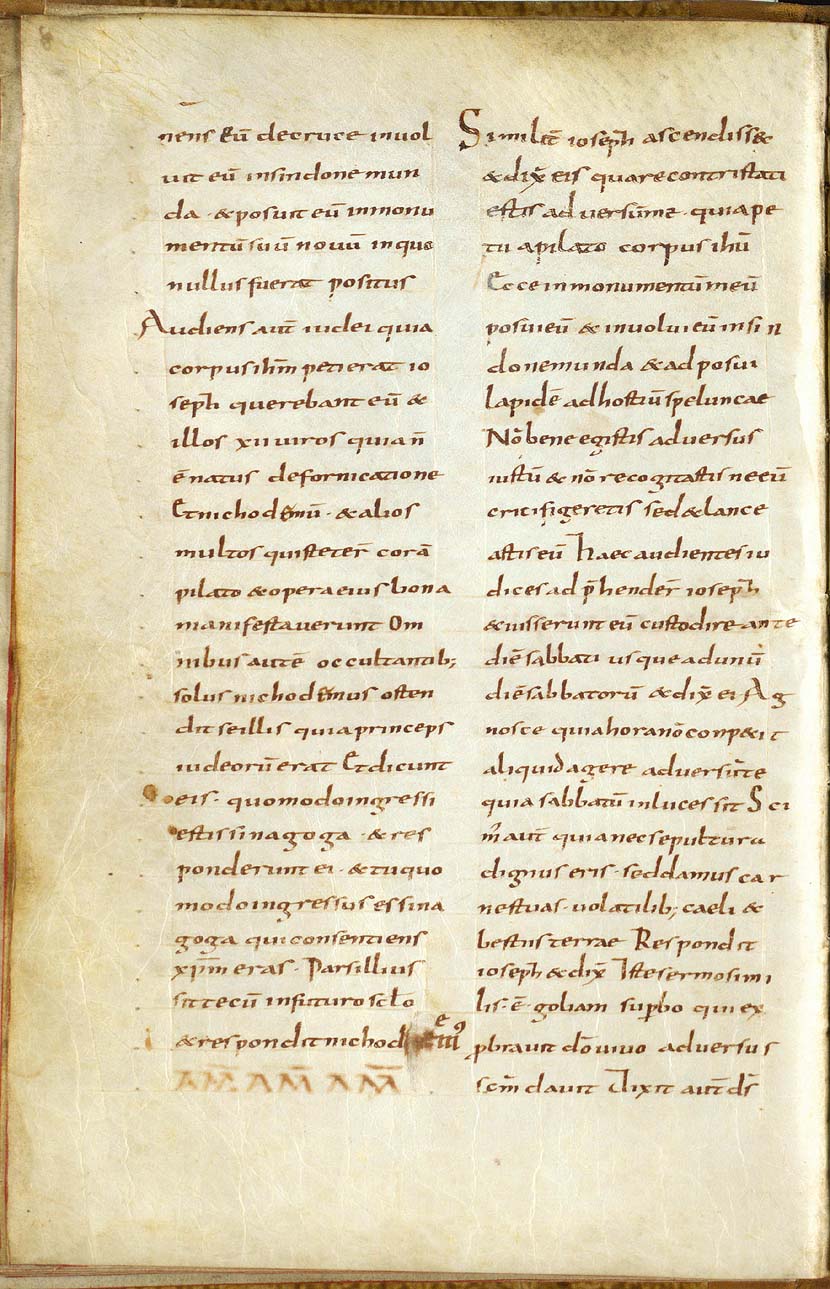 nens eū de cruce invol
vit eū in sindone mun
da · & posuit eū in monu
mentū suū novū in quo
nullus fuerat positus
Audiens aut̄ iudei quia
corpus ih̄m petierat io
seph querebant eū &
illos xii viros quia n̄
ē natus de fornicatione
Et nichodemū · & alios
multos qui steter̄ corā
pilato & opera eius bona
manifestaverunt Om
nibus autē occultantib;
solus nichodemus osten
dit se illis quia princeps
iudeorū erat Et dicunt
eis · quomodo ingressi
estis sinagoga · & res
ponderunt ei · & tu quo
modo ingressus es sina
goga qui consentiens
xp̄m eras · Pars illius
sit tecū in futuro sc̄lo
& respondit nichod em᾽
AM̄ AM̄ AM̄
Similit̄ ioseph ascendiss&
& dix̄ eis quare contristati
estis adversū me · quia pe
tii a pilato corpus ih̄u
Ecce in monumentū meū
posui eū & involvi eū in sin
done munda & adposui
lapidē ad hostiū speluncae
Nō bene egistis adversus
iustū & nō recogitastis ne eū
crucifigeretis sed & lance
astis eū Haec audientes iu
dices adp̄hender̄ ioseph
& iusserunt eū custodire ante
diē sabbati usque ad unū
diē sabbatorū & dix̄ ei Ag
nosce quia hora nō conp&it
aliquid agere adversū te
quia sabbatū inlucessit Sci
m᾽ aut̄ quia nec sepultura
dignus eris · sed damus car
nes tuas · volatilib; caeli &
bestiis terrae Respondit
ioseph & dix̄ Iste sermo simi
lis · ē · goliam sup̄bo qui ex
p̄bravit dō vivo adversus
sc̄m davit Dixit aut̄ ds̄